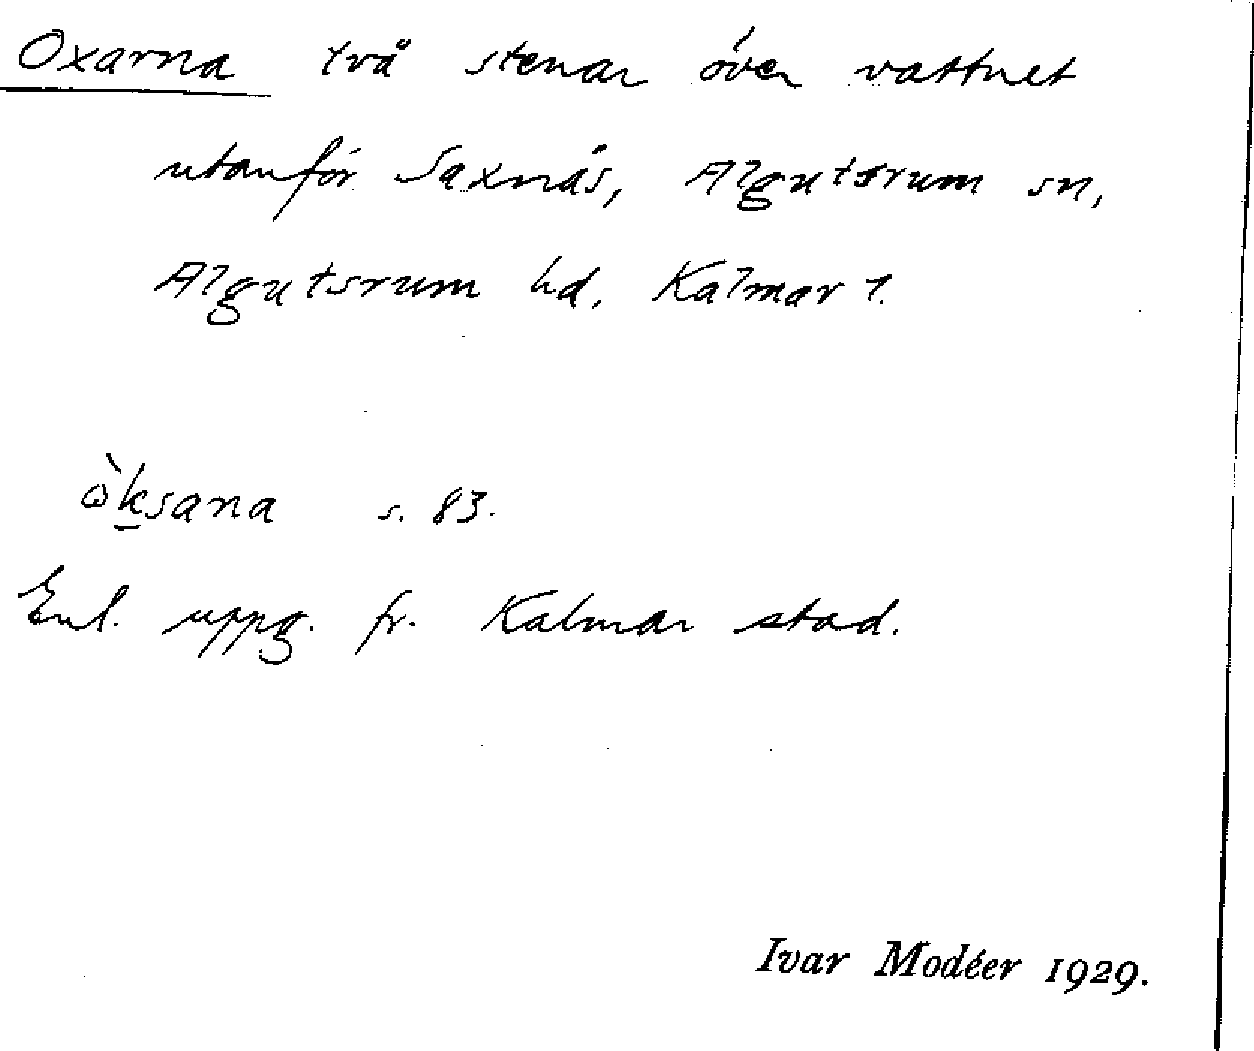 Oxarna två stenar över vattnet
utanför Saxnäs, Algutsrum sn,
Algutsrum hd. Kalmar l.
òk̲sana s. 83.
Enl. uppg. fr. Kalmar stad.
Ivar Modéer 1929.